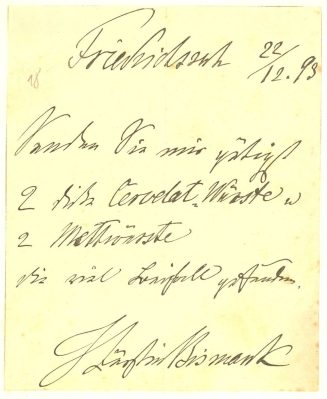 Friedrichsruh 22/12.93
18
Senden Sie mir gütigst
2 dicke Cervelat-Würste u
2 Mettwürste
die viel Beifall gefunden.
Fürstin Bismarck